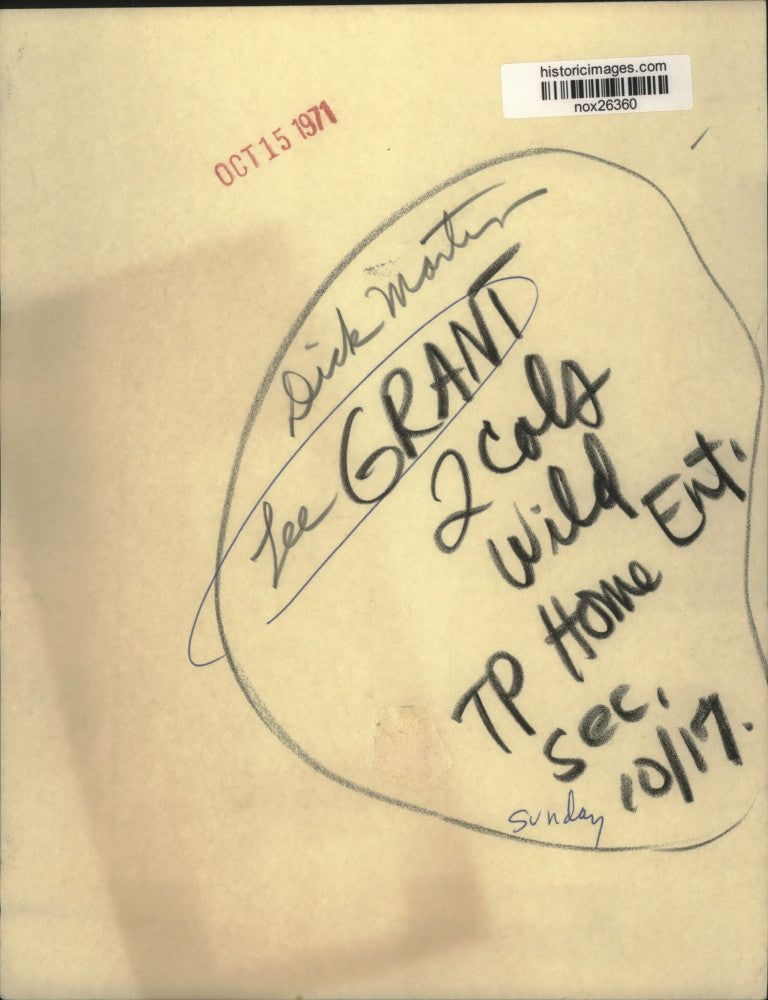 historicimages.com
nox26360
OCT 15 1971
Dick Martin
Lee GRANT
2 cols
Wild
TP Home Ent.
Sec.
10/17.
Sunday